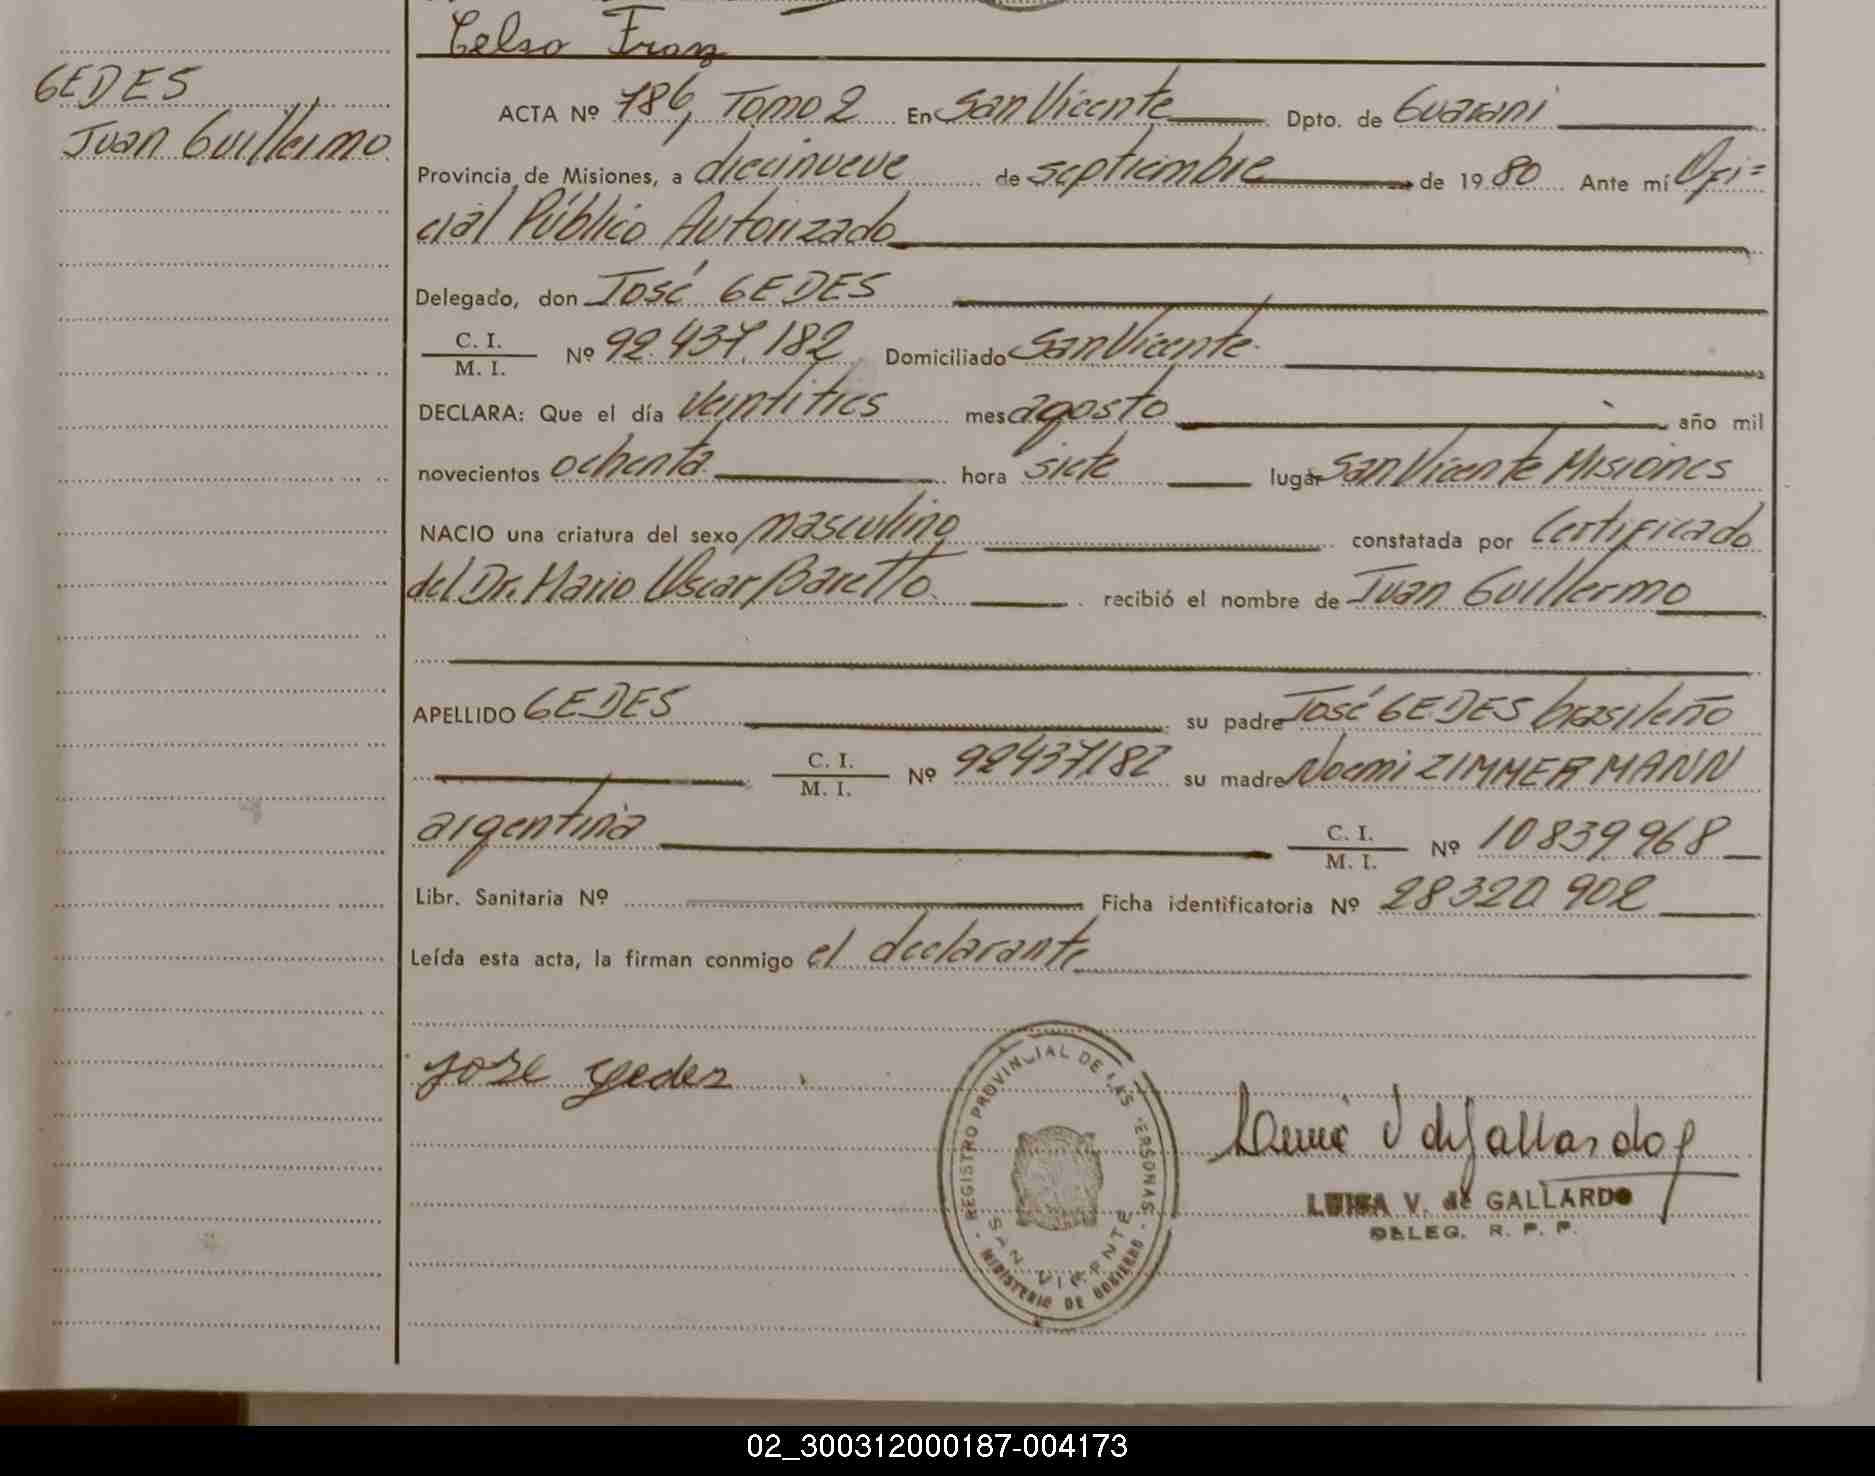 Celso Franz
GEDES
Juan Guillermo
ACTA Nº 786, Tomo 2 En San Vicente Dpto. de Guarani
Provincia de Misiones, a diecinueve de septiembre de 1980 Ante mí Ofi=
cial Público Autorizado
Delegado, don José GEDES
C. I.
M. I.
Nº 92.437.182 Domiciliado San Vicente
DECLARA: Que el día veintitres mes agosto año mil
novecientos ochenta hora siete lugar San Vicente Misiones
NACIO una criatura del sexo masculino constatada por Certificado
del Dr. Mario Oscar Baretto. recibió el nombre de Juan Guillermo
APELLIDO GEDES su padre José GEDES brasileño
C. I.
M. I.
Nº 92437182 su madre Noemi ZIMMERMANN
argentina
C. I.
M. I.
Nº 10839968
Libr. Sanitaria Nº Ficha identificatoria Nº 28320902
Leída esta acta, la firman conmigo el declarante
Jose gedes
REGISTRO PROVINCIAL DE LAS PERSONAS
SAN VICENTE
MINISTERIO DE GOBIERNO
V de Gallardo
LUISA V. de GALLARDO
DELEG. R. P. P.
02_300312000187-004173